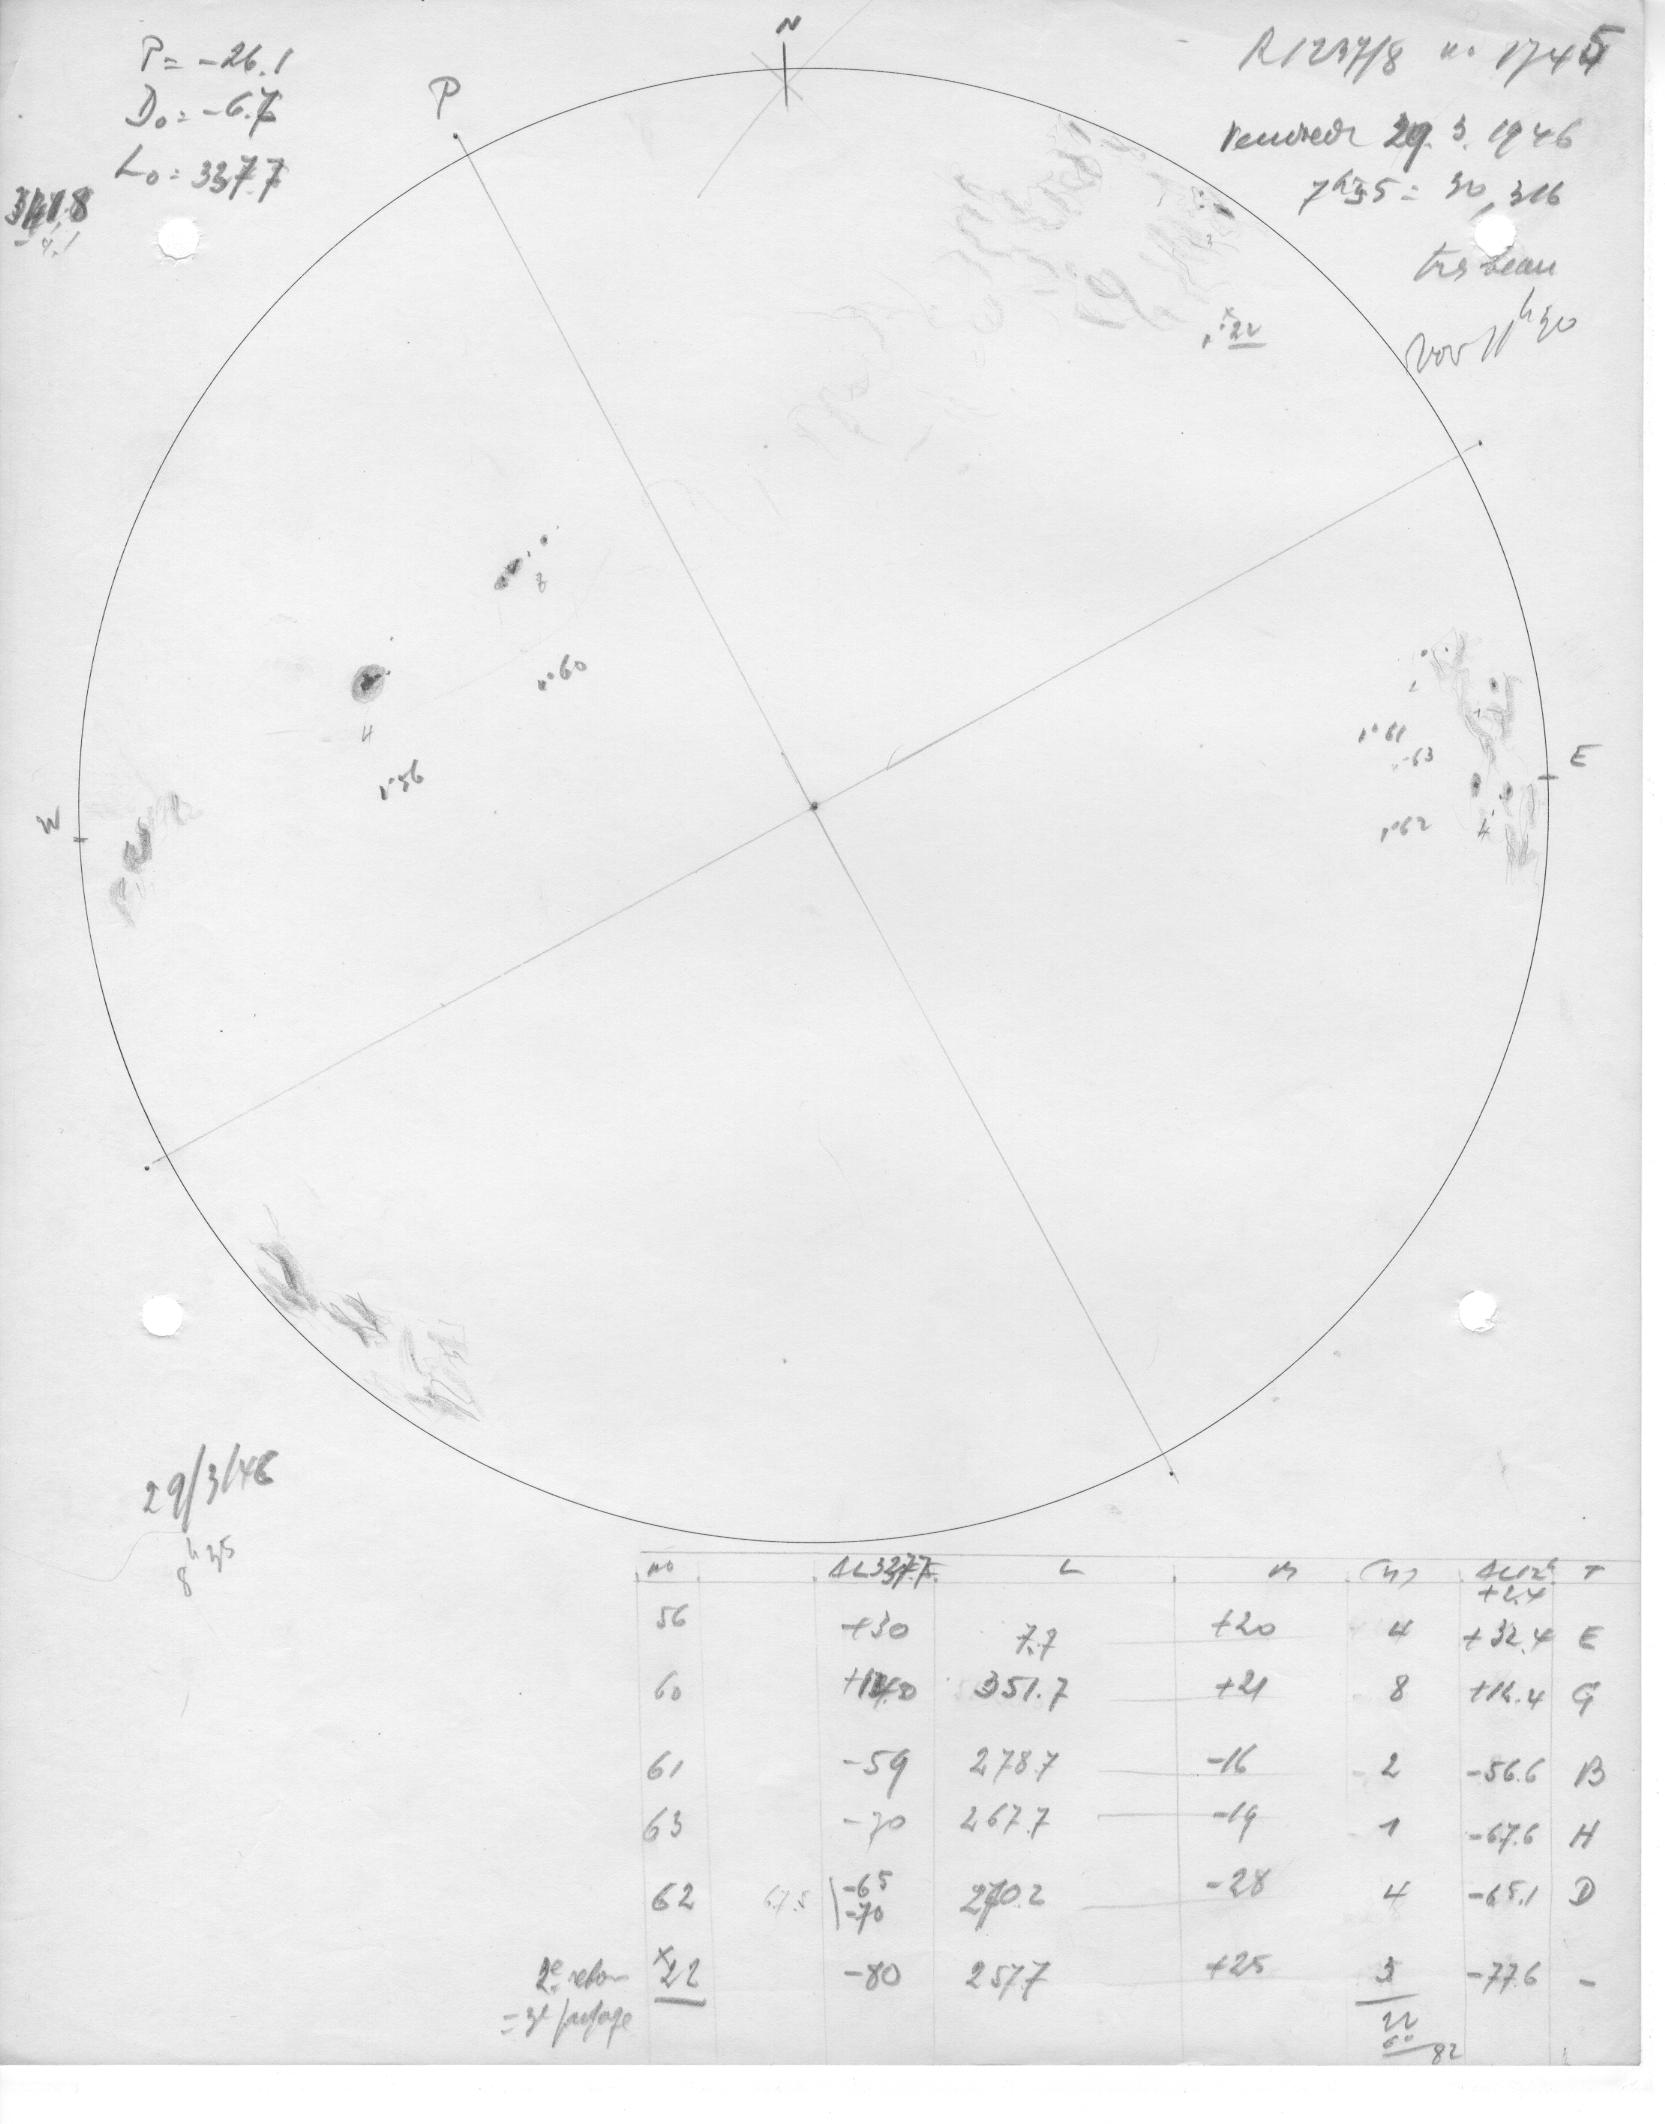 P = -26.1
D₀ = -6.7
L₀ = 337.7
341.8
-4.1
P
N
R1237/8 no 1745
Vendredi 29.3.1946
7h35 = 30,316
très beau
11h30
22
3
8
60
4
56
W
E
2
61
63
1
62
4
29/3/46
8h35
no ΔL337.7 L M (n) ΔL12h T
+2.4
56 +30 7.7 +20 4 +32.4 E
60 +14.0 351.7 +21 8 +16.4 G
61 -59 278.7 -16 2 -56.6 B
63 -70 267.7 -19 1 -67.6 H
62 67.5 -65 270.2 -28 4 -65.1 D
-70
2e retour x22 -80 257.7 +25 3 -77.6 -
= 3e passage
22
60
82